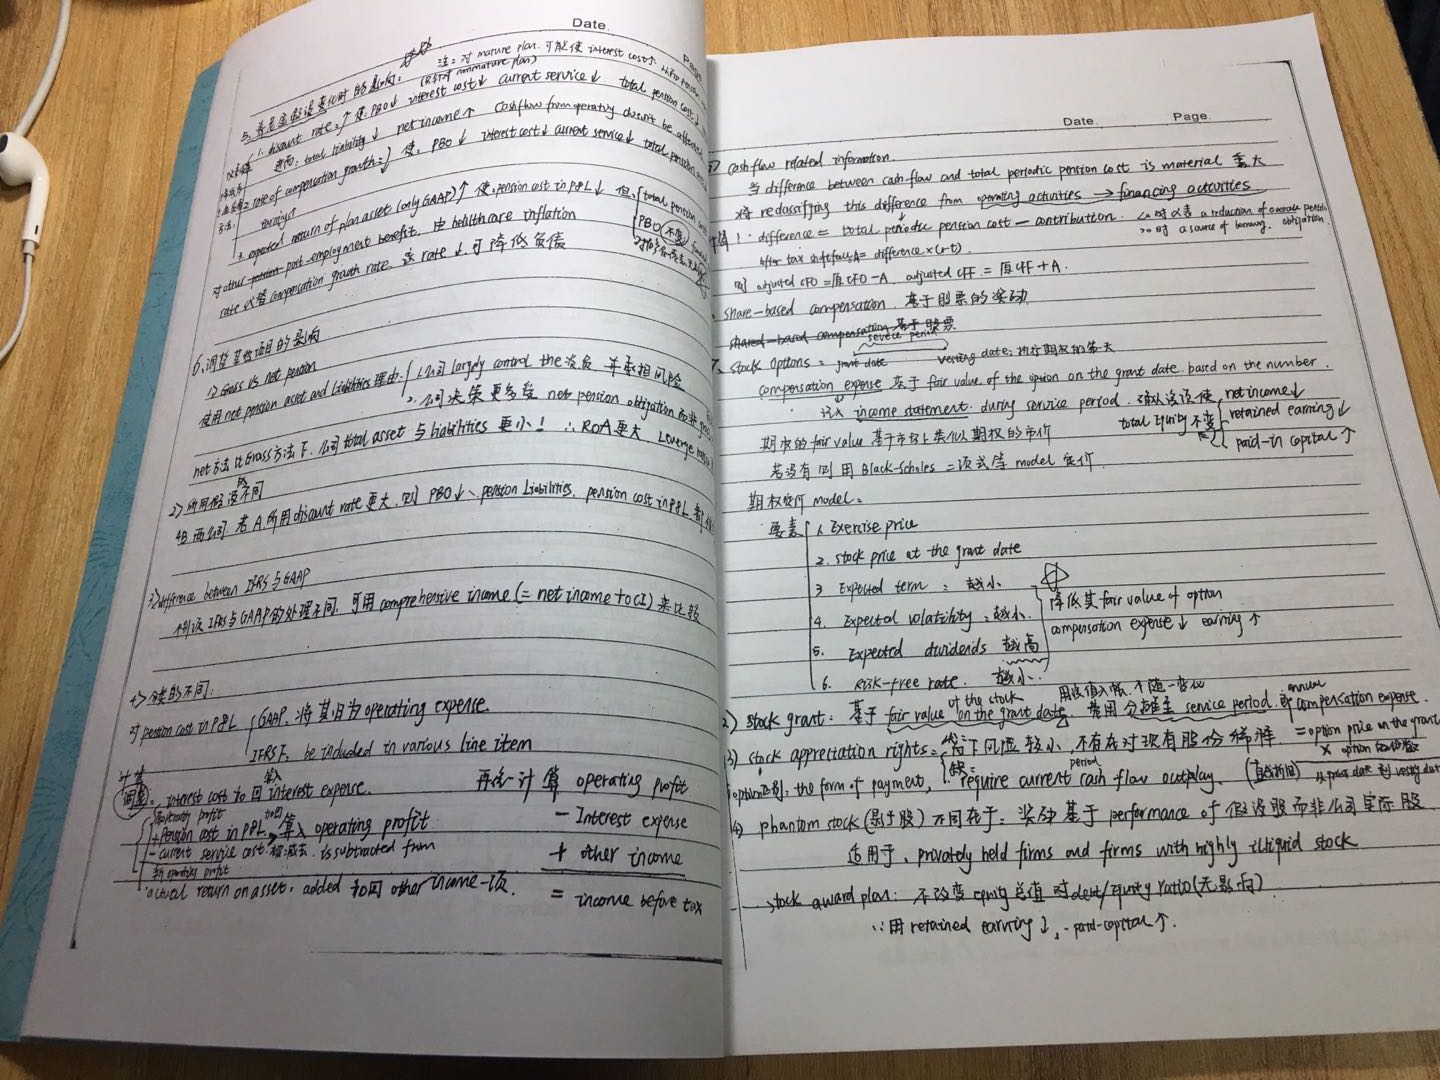 Date.
Page
注: 对 mature plan. 可能使 interest cost↑
(只针对 nonmature plan)
5. 养老金假设变化时的影响:
1. discount rate ↑ 使: PBO↓ interest cost↓ current service↓ total pension cost↓
进而: total liability ↓ net income ↑ Cashflow from operating doesn't be affected
2. rate of compensation growth↓ 使: PBO↓ interest cost↓ current service↓ total pension
3. expected return of plan asset (only GAAP)↑ 使: pension cost in P&L↓ 但 total pension cost
PBO 不变
对 other post-employment benefit. 由 healthcare inflation
rate 代替 compensation growth rate. 该 rate↓. 可降低负债
6. 调整某些项目的影响
1) Gross vs net pension
使用 net pension asset and liabilities 理由: 1. 公司 largely control the 资产 并承担风险
2. 公司决策更多受 net pension obligation 而非
net方法比Gross方法下. 公司total asset与liabilities更小! ∴ROA更大 Leverage
2) 所用假设不同
AB两公司. 若A所用discount rate更大. 则 PBO↓、pension liabilities. pension cost in P&L.
3) difference between IFRS与GAAP
IFRS与GAAP的处理不同. 可用comprehensive income (= net income + OCI) 来比较
4) 分类的不同:
对 pension cost in P&L GAAP. 将其归为operating expense.
IFRS下. be included in various line item
调整: interest cost 加回 interest expense. 再统计算 operating profit
operating profit
+ pension cost in P&L 加回 算入 operating profit − Interest expense
− current service cost. 被减去. is subtracted from + other income
新operating profit
actual return on asset. added 加回 other income一项. = income before tax
Date. Page.
5) cash flow related information.
当 difference between cash flow and total periodic pension cost is material 重大
将 reclassifying this difference from operating activities → financing activities
! difference = total periodic pension cost − contribution. <0时代表 a reduction of overall pension obligation
>0时 a source of borrowing.
After tax shortfall A = difference×(1-t)
则 adjusted CFO = 原CFO−A. adjusted CFF = 原CFF+A.
share-based compensation. 基于股票的奖励
shared-based compensation 基于股票
service period
stock options = grant date vesting date: 执行期权的第一天
compensation expense 基于 fair value of the option on the grant date. based on the number.
计入 income statement. during service period. 确认该项使 net income↓
total equity不变 retained earning↓
paid-in capital↑
期权的 fair value 基于市场上类似期权的市价
若没有则用 Black-Scholes 二项式等 model 定价
期权定价 model:
要素 1. Exercise price
2. stock price at the grant date
3 Expected term : 越小
4. Expected volatility : 越小. 降低其 fair value of option
5. Expected dividends 越高 compensation expense↓ earning↑
6. Risk-free rate. 越小.
2) stock grant: 基于 fair value of the stock on the grant date. 费用分摊至 service period. 的 annual compensation expense.
用该值入帐. 不随一变化
= option price on the grant × option
3) stock appreciation rights: 优: 下风险较小, 不存在对现有股份稀释
缺: require current cash flow outplay. period
option区别: the form of payment, (直线折旧) 从grant date 到 vesting date
4) phantom stock (影子股) 不同在于: 奖励基于 performance of 假设股而非公司实际股
适用于. privately held firms and firms with highly illiquid stock
stock award plan: 不改变 equity 总值 对 debt/equity ratio (无影响)
∵用 retained earning↓, paid-capital↑.